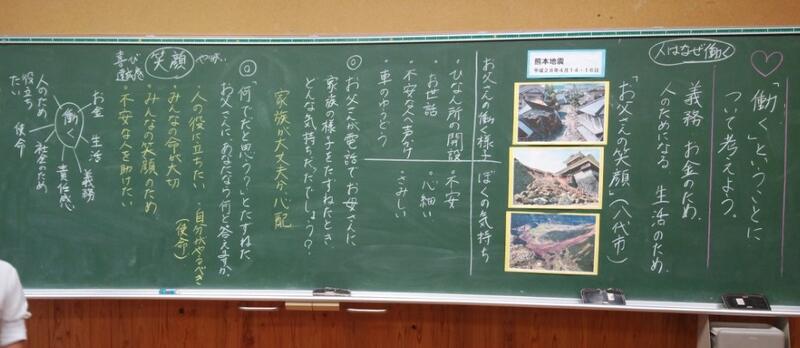 「働く」ということに
ついて考えよう。
人はなぜ働く
義務 お金のため
人のためになる 生活のため
「お父さんの笑顔」(八代市)
熊本地震
平成28年4月14・16日
お父さんの働く様子
・ひなん所の開設
・お世話
・不安な人へ声かけ
・車のゆうどう
ぼくの気持ち
・不安
・心細い
・さみしい
◎お父さんが電話でお母さんに
家族の様子をたずねたとき、
どんな気持ちだったでしょう?
家族が大丈夫か心配
◎「何でだと思う?」とたずねた
お父さんに、あなたなら何と答えますか。
・人の役に立ちたい
・自分がやるべき
(使命)
・みんなの命が大切
・みんなの笑顔のため
・不安な人を助けたい
笑顔
喜び
達成感
やりがい
働く
お金
生活
義務
責任感
社会のため
使命
人のため
役立ちたい